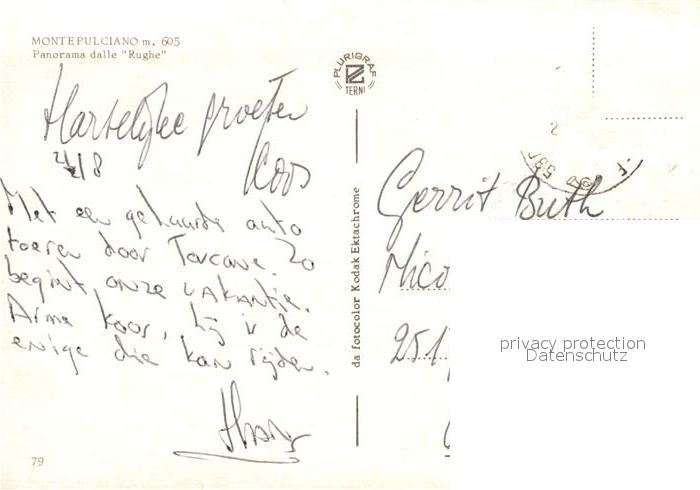 MONTEPULCIANO m. 605
Panorama dalle "Rughe"
Hartelijke groeten
Koos
Met een gehuurde auto
toeren door Toscane. Zo
begint onze vakantie.
Arme Koos, hij is de
enige die kan rijden.
Hans
79
PLURIGRAF
TERNI
da fotocolor Kodak Ektachrome
Gerrit Buth
Nico
251
privacy protection
Datenschutz